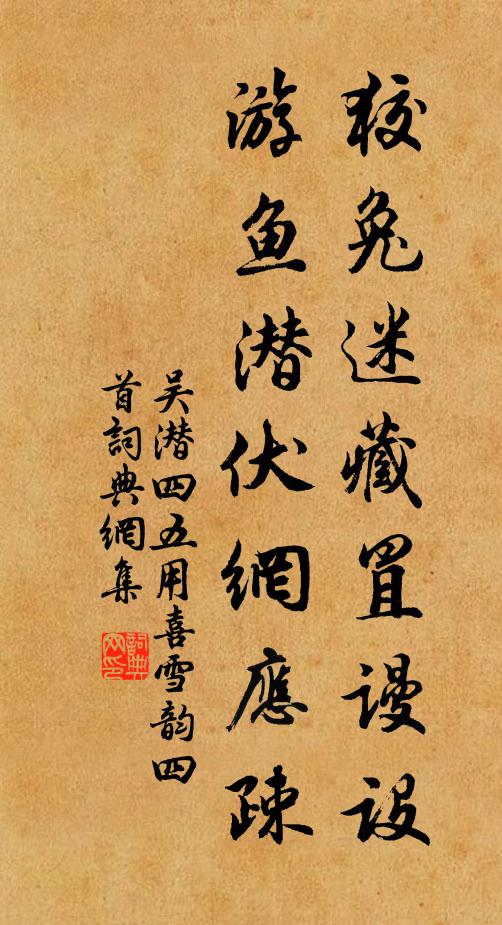 狡兔迷藏罝谩设
游鱼潜伏網應疎
吴潜四五用喜雪韵四
首詞典網集
詞典网印